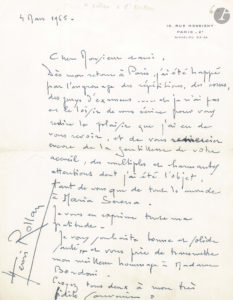 16, RUE MONSIGNY
PARIS - 2ᵉ
4 Mars 1965.
Cher Monsieur et ami.
Dès mon retour à Paris, j'ai été happé
par l'engrenage des répétitions, des cours,
des jurys d'examens .... et je n'ai pas
eu le loisir de vous écrire pour vous
redire le plaisir que j'ai eu de
vous revoir, et de vous remercier
encore de la gentillesse de votre
accueil, des multiples et charmantes
attentions dont j'ai été l'objet.
tant de vous que de tout le monde
à
Je vous en exprime toute ma
gratitude.
Je vous souhaite bonne et solide
et vous prie de transmettre
mon meilleur hommage à Madame
Bordoni.
Croyez tous deux à mon très
fidèle souvenir.
Henri